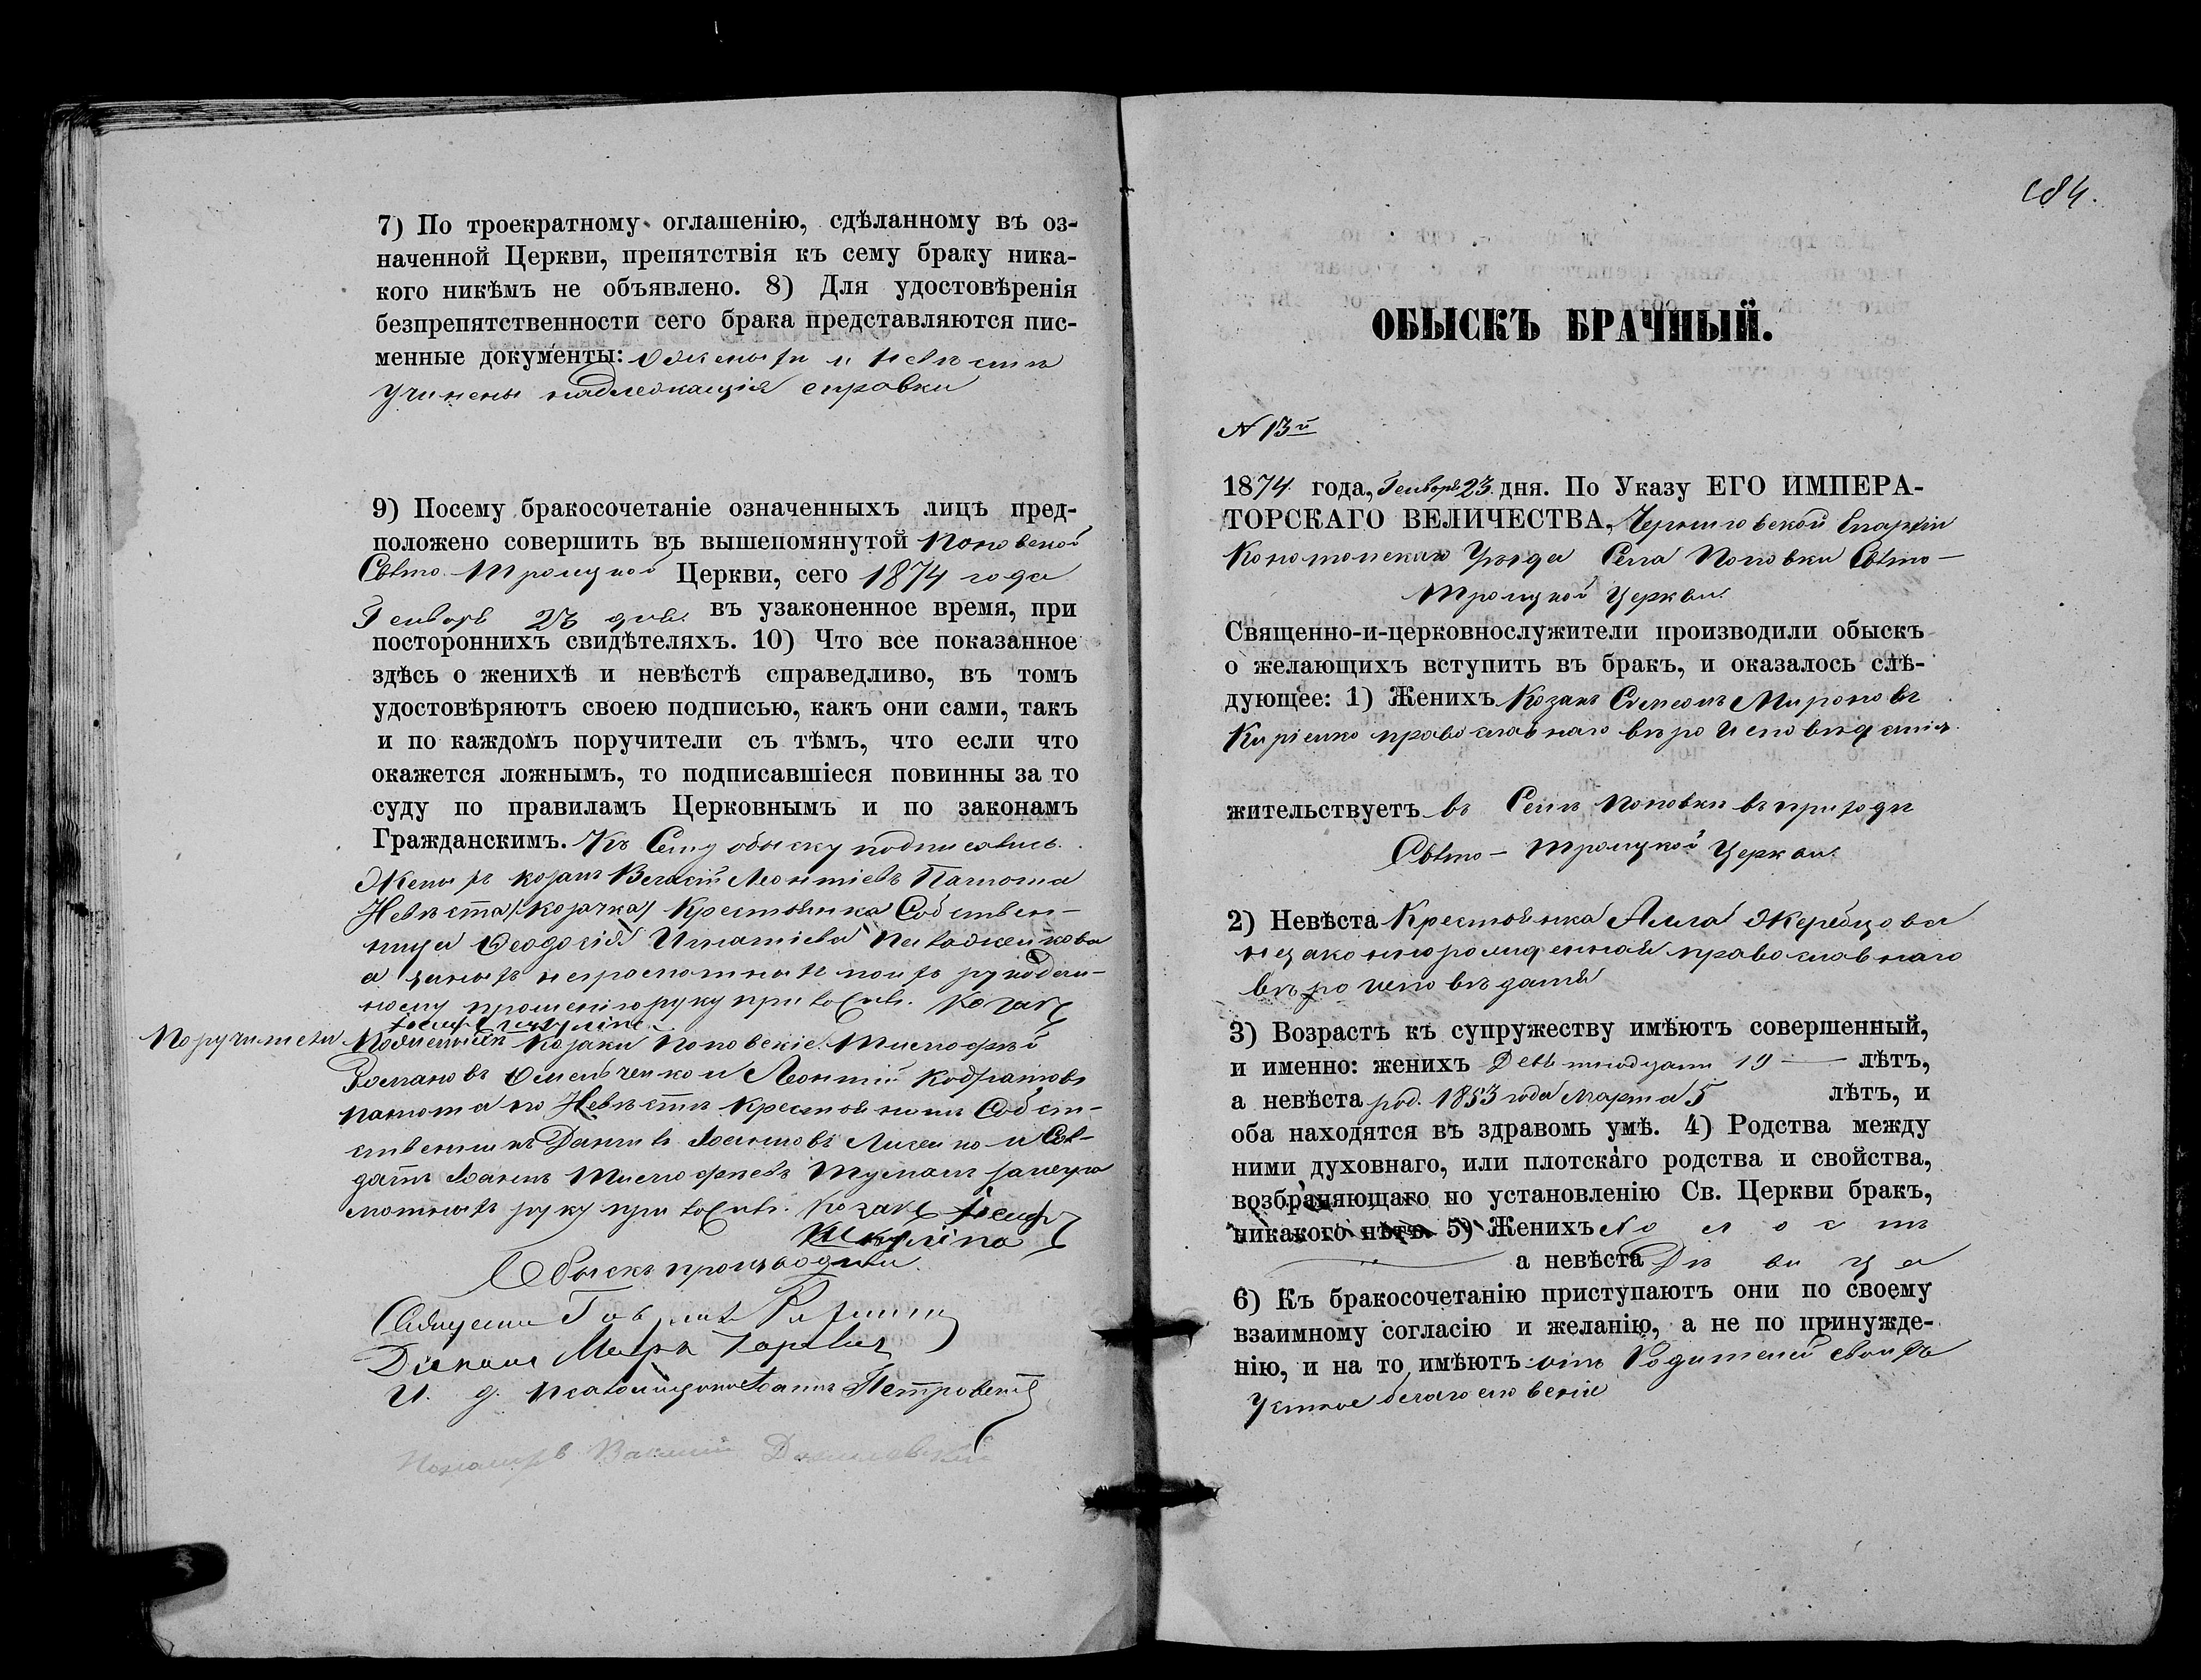 7) По троекратному оглашенію, сдѣланному въ оз-
наченной Церкви, препятствія къ сему браку ника-
кого никѣмъ не объявлено. 8) Для удостовѣренія
безпрепятственности сего брака представляются пис-
менные документы: О женихѣ и невѣстѣ
Учинены надлежащія справки
9) Посему бракосочетаніе означенныхъ лицъ пред-
положено совершить въ вышепомянутой Поповской
Свято-Троицкой Церкви, сего 1874 года
Генваря 23 дня въ узаконенное время, при
постороннихъ свидѣтеляхъ. 10) Что все показанное
здѣсь о женихѣ и невѣстѣ справедливо, въ томъ
удостовѣряютъ своею подписью, какъ они сами, такъ
и по каждомъ поручители съ тѣмъ, что если что
окажется ложнымъ, то подписавшіеся повинны за то
суду по правиламъ Церковнымъ и по законамъ
Гражданскимъ. Къ Сему обыску подписались
Женихъ козакъ Власій Леонтіевъ
Невѣста (козачка) Крестьянка Собствен-
ница Ѳеодосія Игнатіева
а за нихъ неграмотныхъ по ихъ рукодан-
ному прошенію руку приложилъ. Козакъ
Поручители
козаки Поповскіе: Тимофѣй
Романовъ Омельченко и Леонтій Кодратовъ
по Невѣстѣ крестьянинъ Соб-
ственникъ Данило и Сол-
датъ Іоаннъ Тимофѣевъ Туманъ за негра
мотныхъ руку приложилъ. Козакъ Іосифъ
Обыскъ производили
Священникъ
Діаконъ
И. д. Псаломщика Іоаннъ Петровскій
Василій
184.
ОБЫСКЪ БРАЧНЫЙ.
№ 13й
1874 года, Генваря 23 дня. По Указу ЕГО ИМПЕРА-
ТОРСКАГО ВЕЛИЧЕСТВА, Черниговской Епархіи
Конотопскаго Уѣзда Села Поповки Свято-
Троицкой Церкви
Священно-и-церковнослужители производили обыскъ
о желающихъ вступить въ бракъ, и оказалось слѣ-
дующее: 1) Женихъ Козакъ Симеонъ Мироновъ
Киріенко православнаго вѣроисповѣданія
жительствуетъ въ Селѣ Поповки въ приходѣ
Свято-Троицкой Церкви
2) Невѣста Крестьянка Анна Жеребцова
незаконнорожденная православнаго
вѣроисповѣданія
3) Возрастъ къ супружеству имѣютъ совершенный,
и именно: женихъ Девятнадцать 19 — лѣтъ,
а невѣста род. 1853 года Марта 5 лѣтъ, и
оба находятся въ здравомъ умѣ. 4) Родства между
ними духовнаго, или плотскаго родства и свойства,
возбраняющаго по установленію Св. Церкви бракъ,
никакого нѣтъ. 5) Женихъ Холостъ
а невѣста Дѣвица
6) Къ бракосочетанію приступаютъ они по своему
взаимному согласію и желанію, а не по принужде-
нію, и на то имѣютъ отъ Родителей своихъ
Устное благословеніе